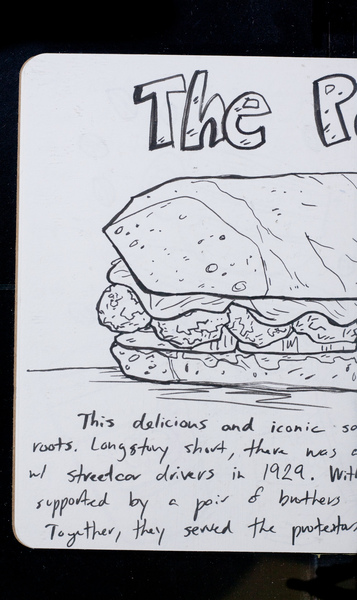 The P
This delicious and iconic
roots. Longstory short, there was a
w/ streetcar drivers in 1929. With
supported by a pair of brothers
Together, they served the protestors